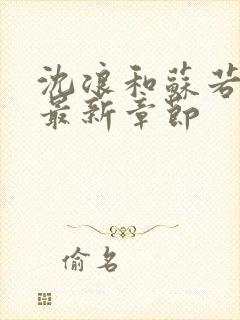 沈浪和蘇若
最新章節
偷名